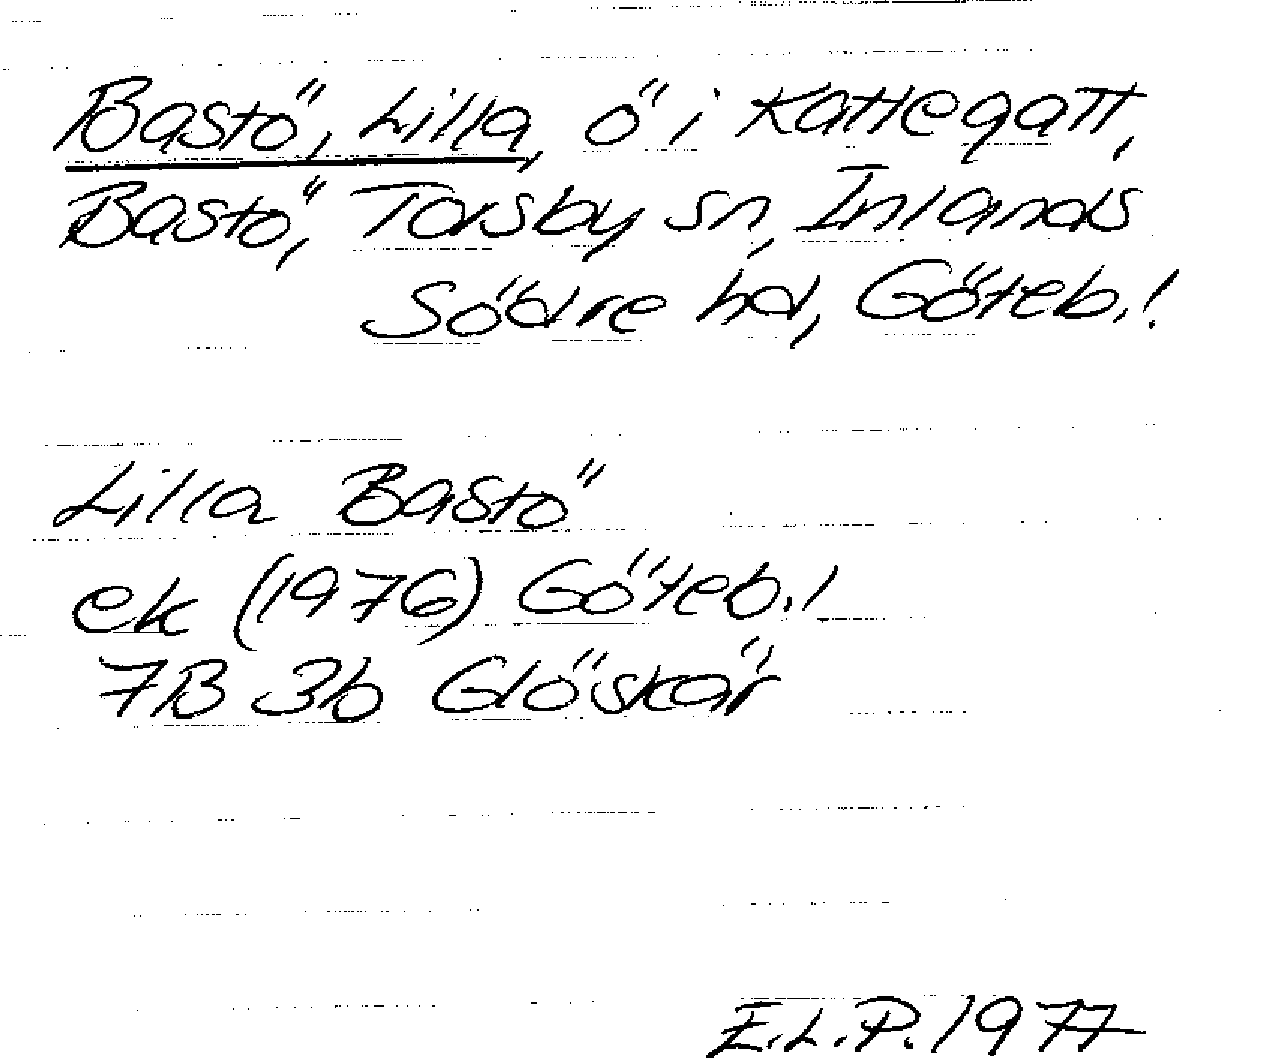 Bastö, Lilla, ö i Kattegatt,
Bastö, Torsby sn, Inlands
Södre hd, Göteb.!
Lilla Bastö
ek (1976) Göteb.!
7B 3b Glöskär
E.L.P. 1977